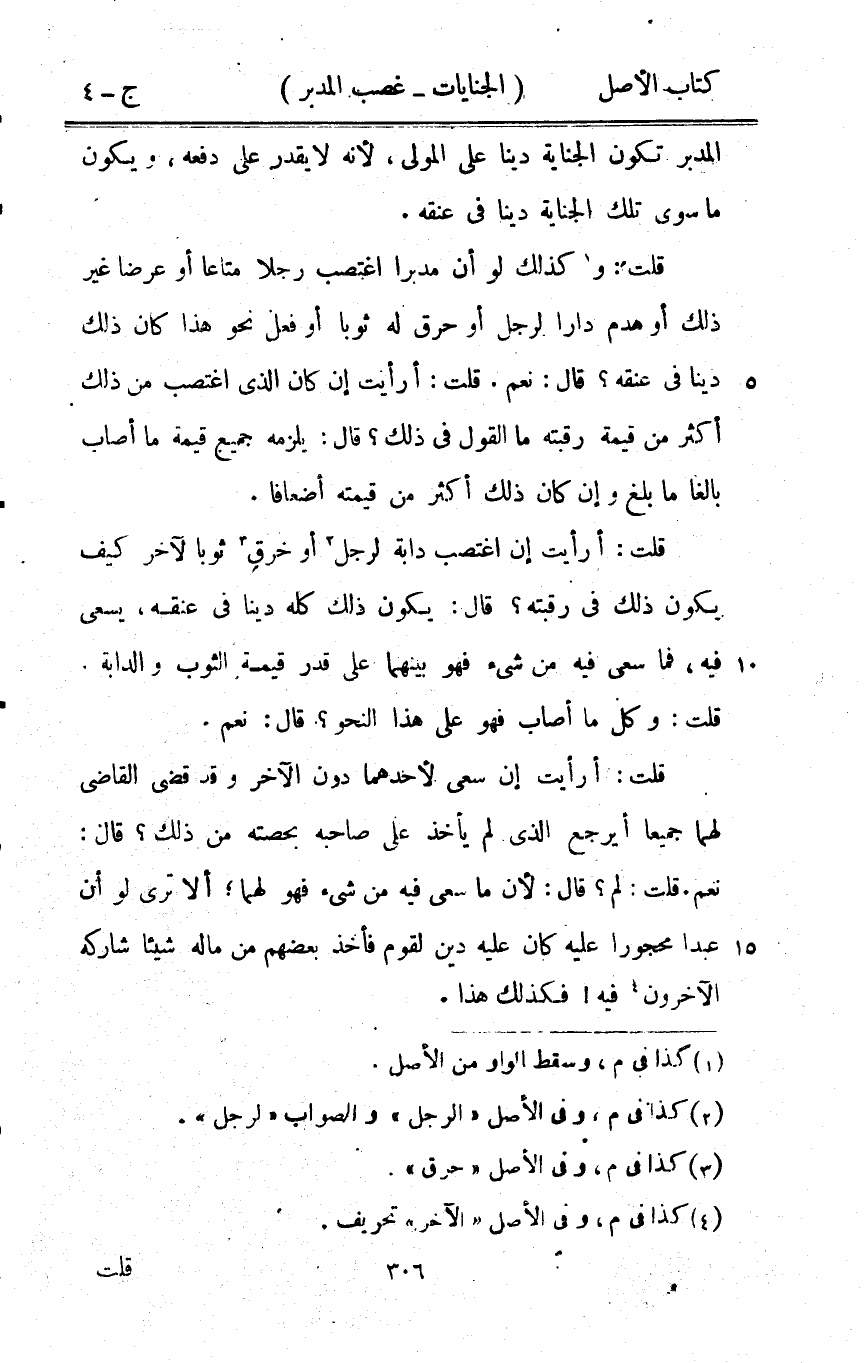 كتاب الأصل ( الجنايات ـ غصب المدبر ) ج ـ ٤
المدبر تكون الجناية دينا على المولى ، لأنه لا يقدر على دفعه ، و يكون
ما سوى تلك الجناية دينا فى عنقه .
قلت : و١ كذلك لو أن مدبرا اغتصب رجلا متاعا أو عرضا غير
ذلك أو هدم دارا لرجل أو حرق له ثوبا أو فعل نحو هذا كان ذلك
٥ دينا فى عنقه ؟ قال : نعم . قلت : أ رأيت إن كان الذى اغتصب من ذلك
أكثر من قيمة رقبته ما القول فى ذلك ؟ قال : يلزمه جميع قيمة ما أصاب
بالغا ما بلغ و إن كان ذلك أكثر من قيمته أضعافا .
قلت : أ رأيت إن اغتصب دابة لرجل٢ أو خرق٣ ثوبا لآخر كيف
يكون ذلك فى رقبته ؟ قال : يكون ذلك كله دينا فى عنقه ، يسعى
١٠ فيه ، فما سعى فيه من شىء فهو بينهما على قدر قيمة الثوب و الدابة .
قلت : و كل ما أصاب فهو على هذا النحو ؟ قال : نعم .
قلت : أ رأيت إن سعى لأحدهما دون الآخر و قد قضى القاضى
لهما جميعا أ يرجع الذى لم يأخذ على صاحبه بحصته من ذلك ؟ قال :
نعم . قلت : لم ؟ قال : لأن ما سعى فيه من شىء فهو لهما ؛ ألا ترى لو أن
١٥ عبدا محجورا عليه كان عليه دين لقوم فأخذ بعضهم من ماله شيئا شاركه
الآخرون٤ فيه ! فكذلك هذا .
(١) كذا فى م ، و سقط الواو من الأصل .
(٢) كذا فى م ، و فى الأصل « الرجل » و الصواب « لرجل » .
(٣) كذا فى م ، و فى الأصل « حرق » .
(٤) كذا فى م ، و فى الأصل « الآخر » تحريف .
٣٠٦ قلت